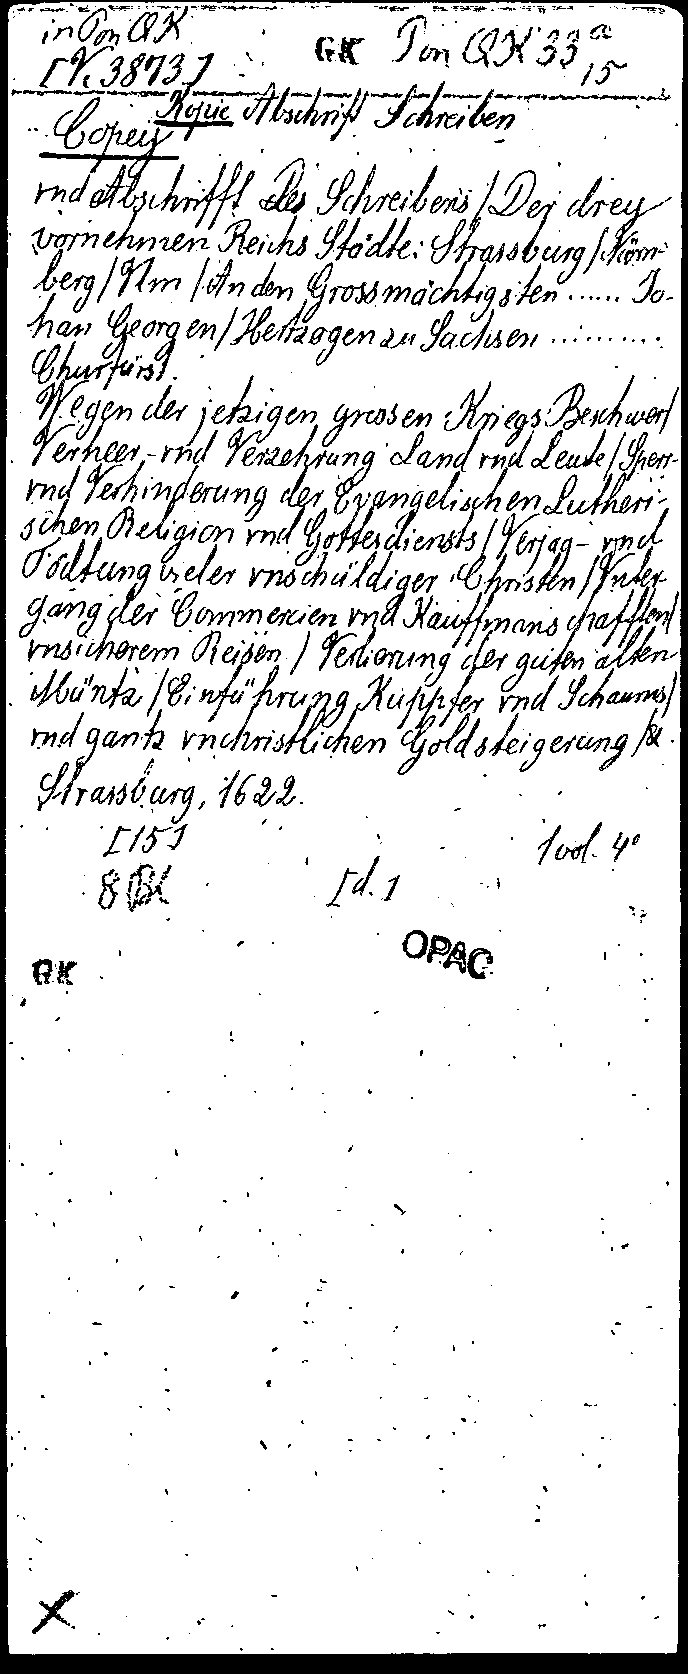 in Pon QK
[V. 3873]
GK Pon QK 33 a
15
Kopie Abschrift Schreiben
Copey
vnd Abschrifft Des Schreibens / Der drey
vornehmen Reichs Städte: Strassburg / Nürn-
berg / Vlm / An den Grossmächtigsten ...... Jo-
han Georgen / Hertzogen zu Sachsen ..........
Churfürst.
Wegen der jetzigen grossen Kriegs Beschwer /
Verheer- vnd Verzehrung Land vnd Leute / Sperr-
vnd Verhinderung der Evangelischen Lutheri-
schen Religion vnd Gottesdiensts / Verjag- vnd
Tödtung vieler vnschuldiger Christen / Vnter-
gang der Commercien vnd Kauffmanschafften /
vnsicherem Reisen / Verlierung der guten alten
Müntz / Einführung Kupffer vnd Schaums /
vnd gantz vnchristlichen Goldsteigerung / &.
Strassburg, 1622.
[15] 1 vol. 4°
8 Bl [d.]
GK OPAC
X